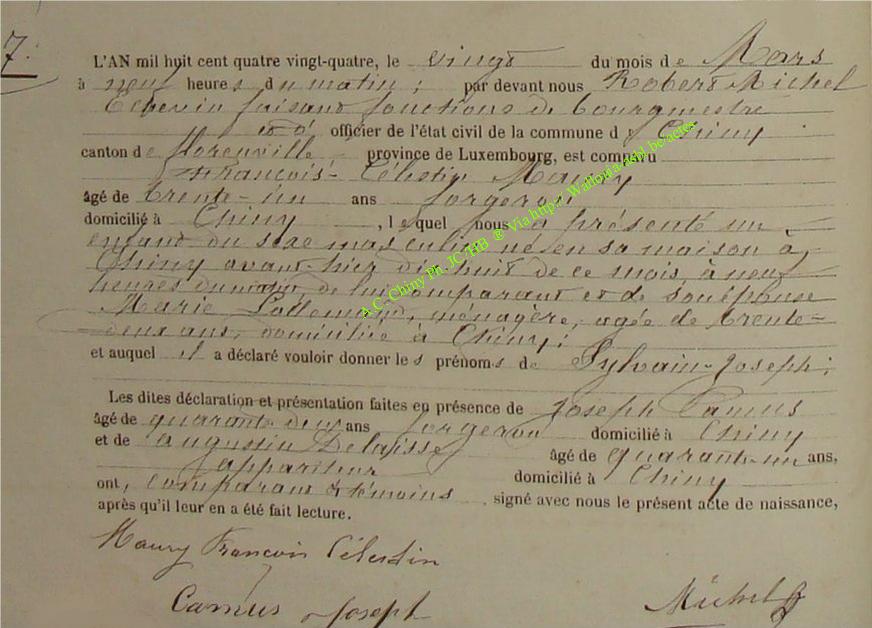 7.
L'AN mil huit cent quatre vingt-quatre, le vingt du mois de Mars
à neuf heures du matin; par devant nous Robert Michel
Echevin faisant fonctions de bourgmestre
officier de l'état civil de la commune de Chiny
canton de florenville province de Luxembourg, est comparu
François-Célestin Maury
âgé de trente-un ans forgeron
domicilié à Chiny, lequel nous a présenté un
enfant du sexe masculin né en sa maison à
Chiny avant-hier dix-huit de ce mois, à neuf
heures du matin de lui comparant et de son épouse
Marie Lallemand, ménagère, agée de trente-
deux ans, domiciliée à Chiny;
et auquel il a déclaré vouloir donner les prénoms de Sylvain-Joseph;
Les dites déclaration et présentation faites en présence de Joseph Camus
âgé de quarante deux ans forgeron domicilié à Chiny
et de Augustin Delaisse âgé de quarante-un ans,
appariteur domicilié à Chiny
ont, comparant & témoins signé avec nous le présent acte de naissance,
après qu'il leur en a été fait lecture.
Maury François Célestin
Camus Joseph Michel
A.C. Chiny Ph. JC HB ® Via http:// Wallonia-asbl.be/actes